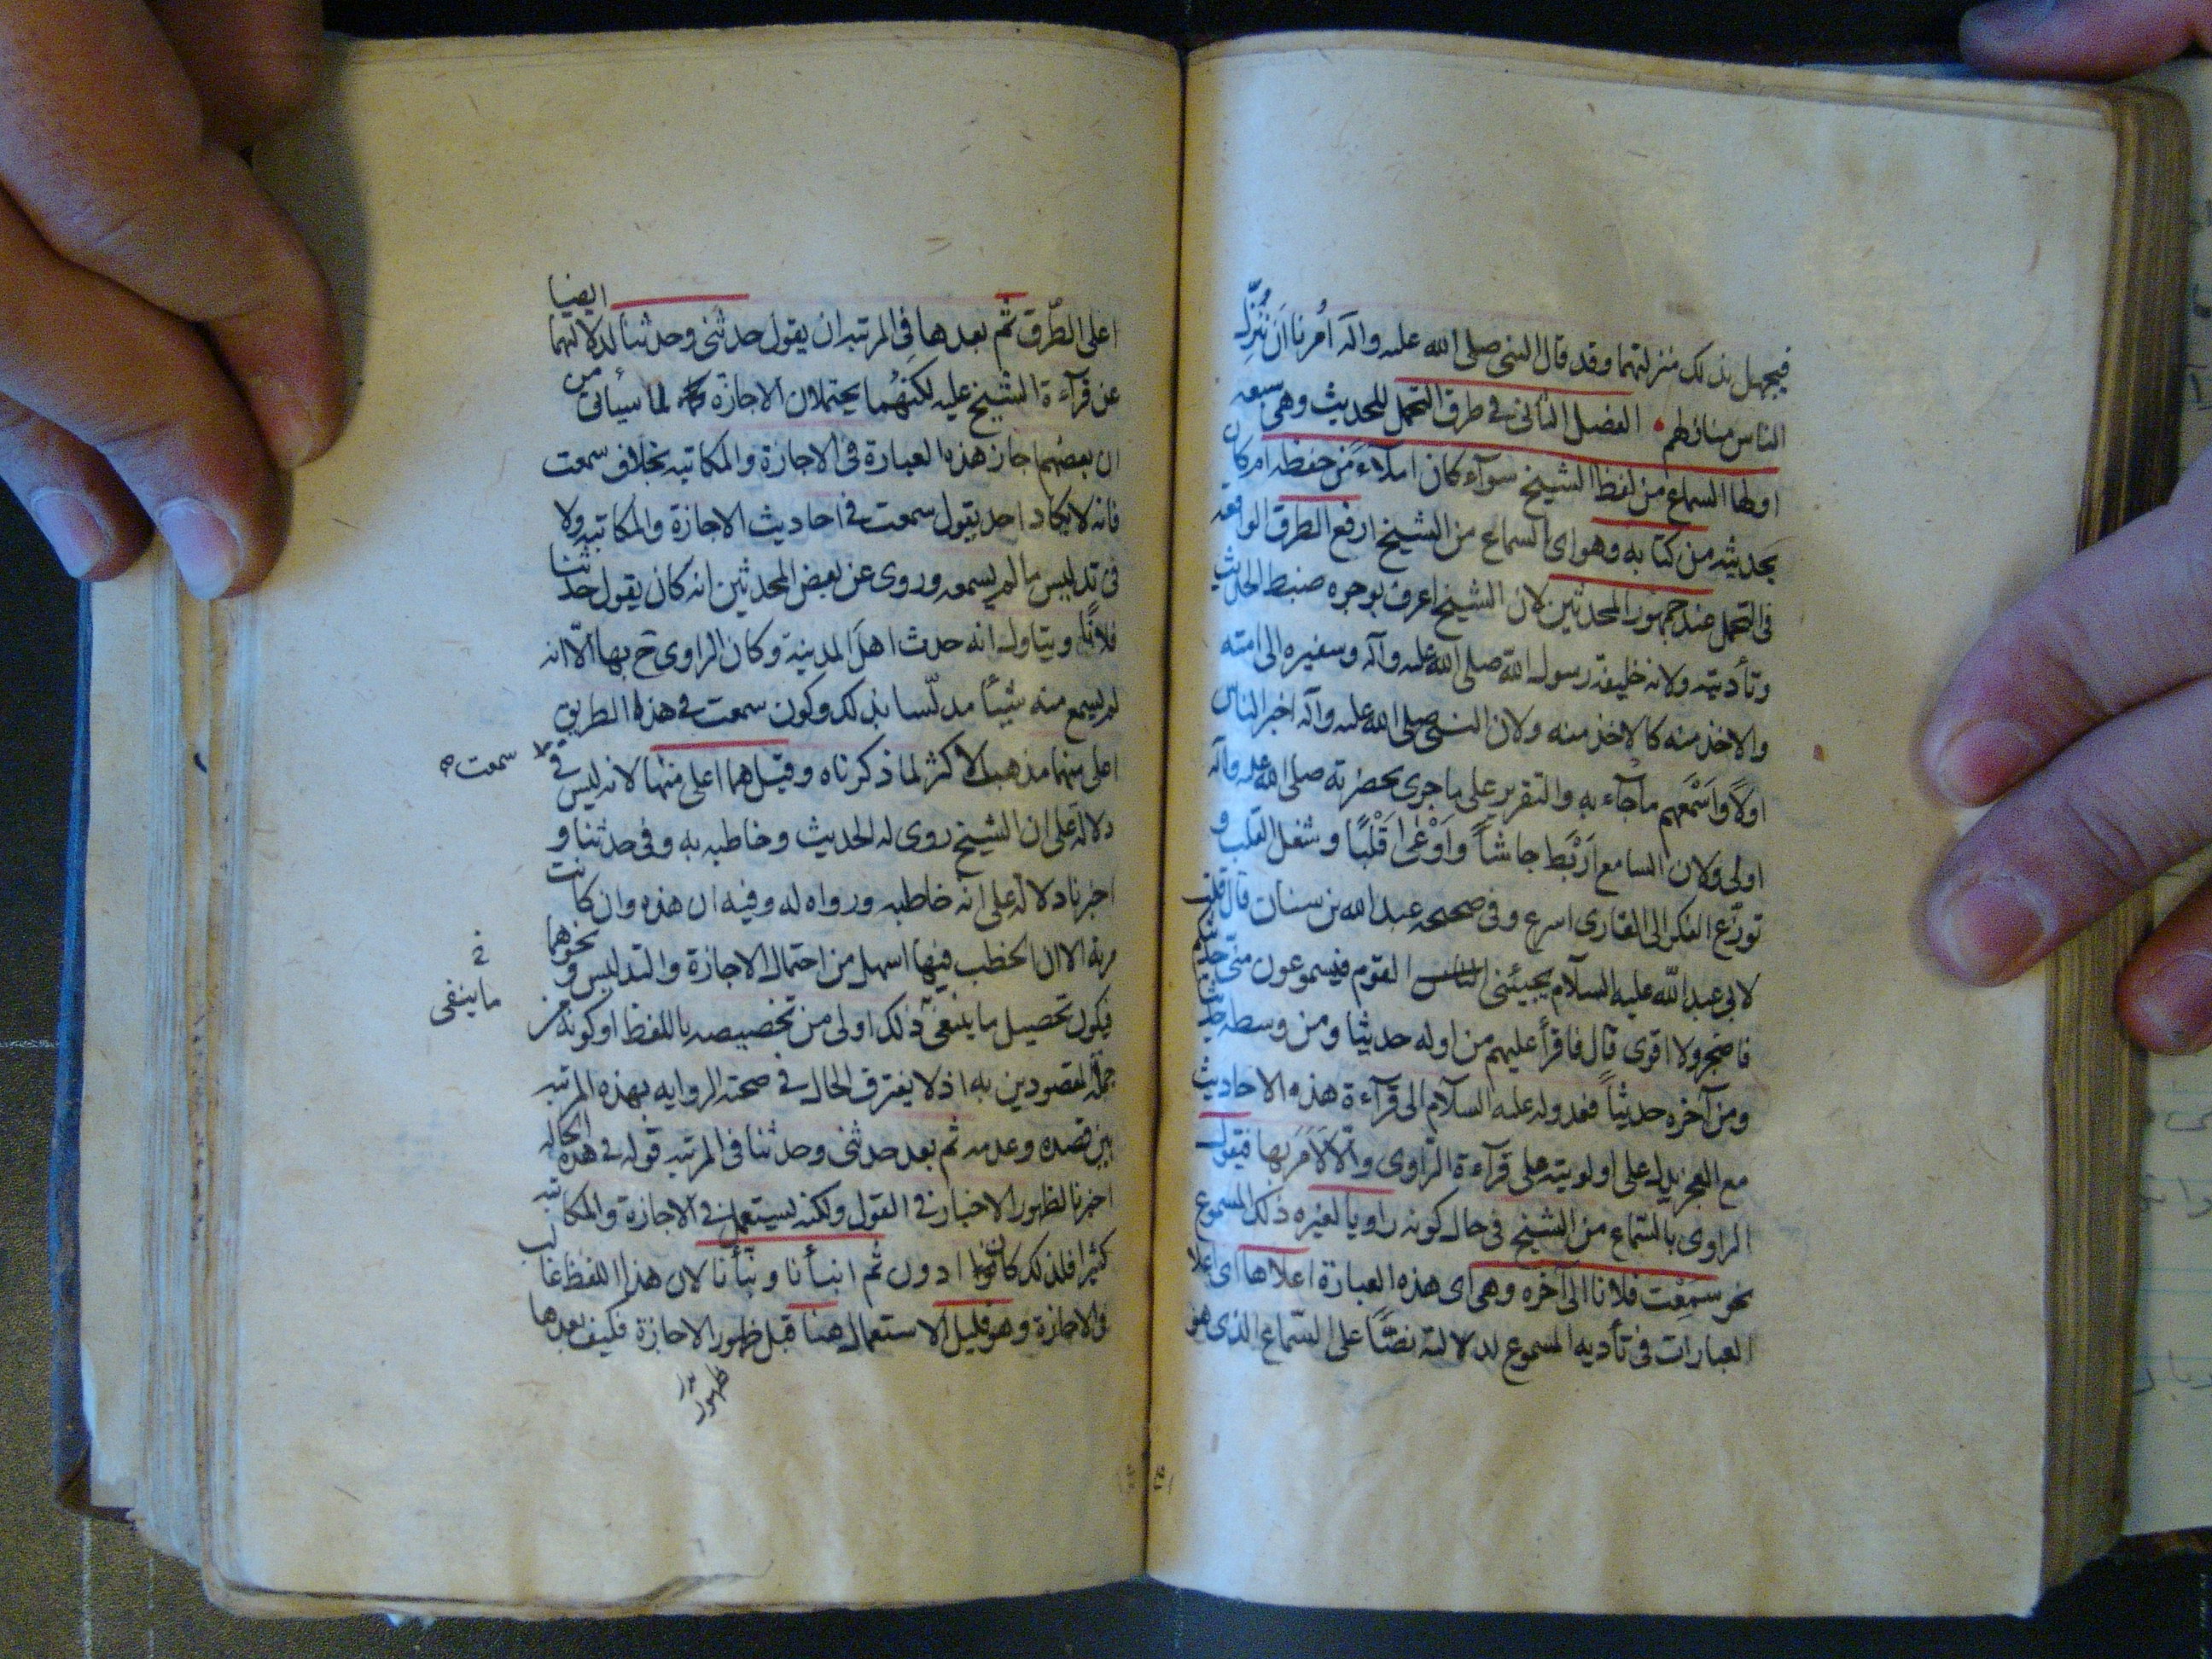 فيجهل بذلك منزلتهما وقد قال النبى صلى الله عليه وآله أُمرنا اَن نُنَزِّل
الناس منازلهم • الفصل الثانى فى طرق التحمل للحديث وهى سبعه
اولها السماع من لفظ الشيخ سوآء كان املآءً من حفظه ام كان
بحديثه من كتابه وهو اى السماع من الشيخ ارفع الطرق الواقعه
فى التحمل عند جمهور المحدثين لان الشيخ اعرف بوجوه ضبط الحديث
وتأديته ولانه خليفة رسول الله صلى الله عليه وآله وسفيره الى امته
والاخذ منه كالاخذ منه ولان النبى صلى الله عليه وآله اخبر الناس
اولاً واَسْمَعهم ماجآء به والتقرير على ماجرى بحضرته صلى الله عليه وآله
اولى ولان السامع اَرْبَط جاشاً واَوْعٰى قَلْبًا وشغل القلب و
توزّع الفكر الى القارى اسرع وفى صحيحه عبد الله بن سنان قال قلت
لابى عبد الله عليه السلام يجيئنى القوم فيسمعون منّى حديثكم
فاضجر ولا اقوى قال فاقرأ عليهم من اوله حديثا ومن وسطه حديثا
ومن آخره حديثاً فعدوله عليه السلام الى قرآءة هذه الاحاديث
مع العجز يدل على اولويته على قرآءة الرّاوى والّا لاَمَرَ بها فيقول
الراوى بالسّماع من الشيخ فى حال كونه راويا لغيره ذلك المسموع
نحو سَمِعْت فلانا الى آخره وهى اى هذه العبارة اعلاها اى اعلا
العبارات فى تأديه المسموع لدلالته نصًّا على السّماع الذى هو
اعلى الطّرق ثم بعدها فى المرتبه ان يقول حدثنى وحدثنا لدلالتهما ايضا
عن قرآءة الشيخ عليه لكنهُما يحتملان الاجازة لما سيأتى من
ان بعضهم اجاز هذه العبارة فى الاجازة والمكاتبه بخلاف سمعت
فانه لايكاد احد يقول سمعت فى احاديث الاجازة والمكاتبه ولا
فى تدليس مالم يسمعه وروى عن بعض المحدثين انه كان يقول حدثنا
فلانًا ويتاول انه حدث اهل المدينة وكان الراوى ح بها الّا انه
لم يسمع منه شيئًا مدلّسا بذلك وكون سمعت فى هذه الطريق
اعلى منهما مذهب الاكثر لما ذكرناه وقيل هما اعلى منها لانه ليس فى
سمعت
دلالة على ان الشيخ روى له الحديث وخاطبه به وفى حدثنا و
اخبرنا دلالة على انه خاطبه ورواه له وفيه ان هذه وان كانت
مزية الا ان الخطب فيها اسهل من احتمال الاجازة والتدليس ونحوهما
فيكون تحصيل ما ينفى ذلك اولى من تخصيصه باللفظ او كونه من
ماينفى
جملة المقصودين به اذ لا يفترق الحال فى صحة الروايه بهذه المرتبه
بين قصده وعدمه ثم بعد حدثنى وحدثنا فى المرتبه قوله فى هذه الحاله
اخبرنا لظهور الاخبار فى القول ولكنه يستعمل فى الاجازة والمكاتبه
كثيرا فلذلك كان ادون ثم انبأنا ونبّأنا لان هذا اللفظ غالب
فى الاجازة وهو قليل الاستعمال هنا قبل ظهور الاجازة فكيف بعدها
ظهور